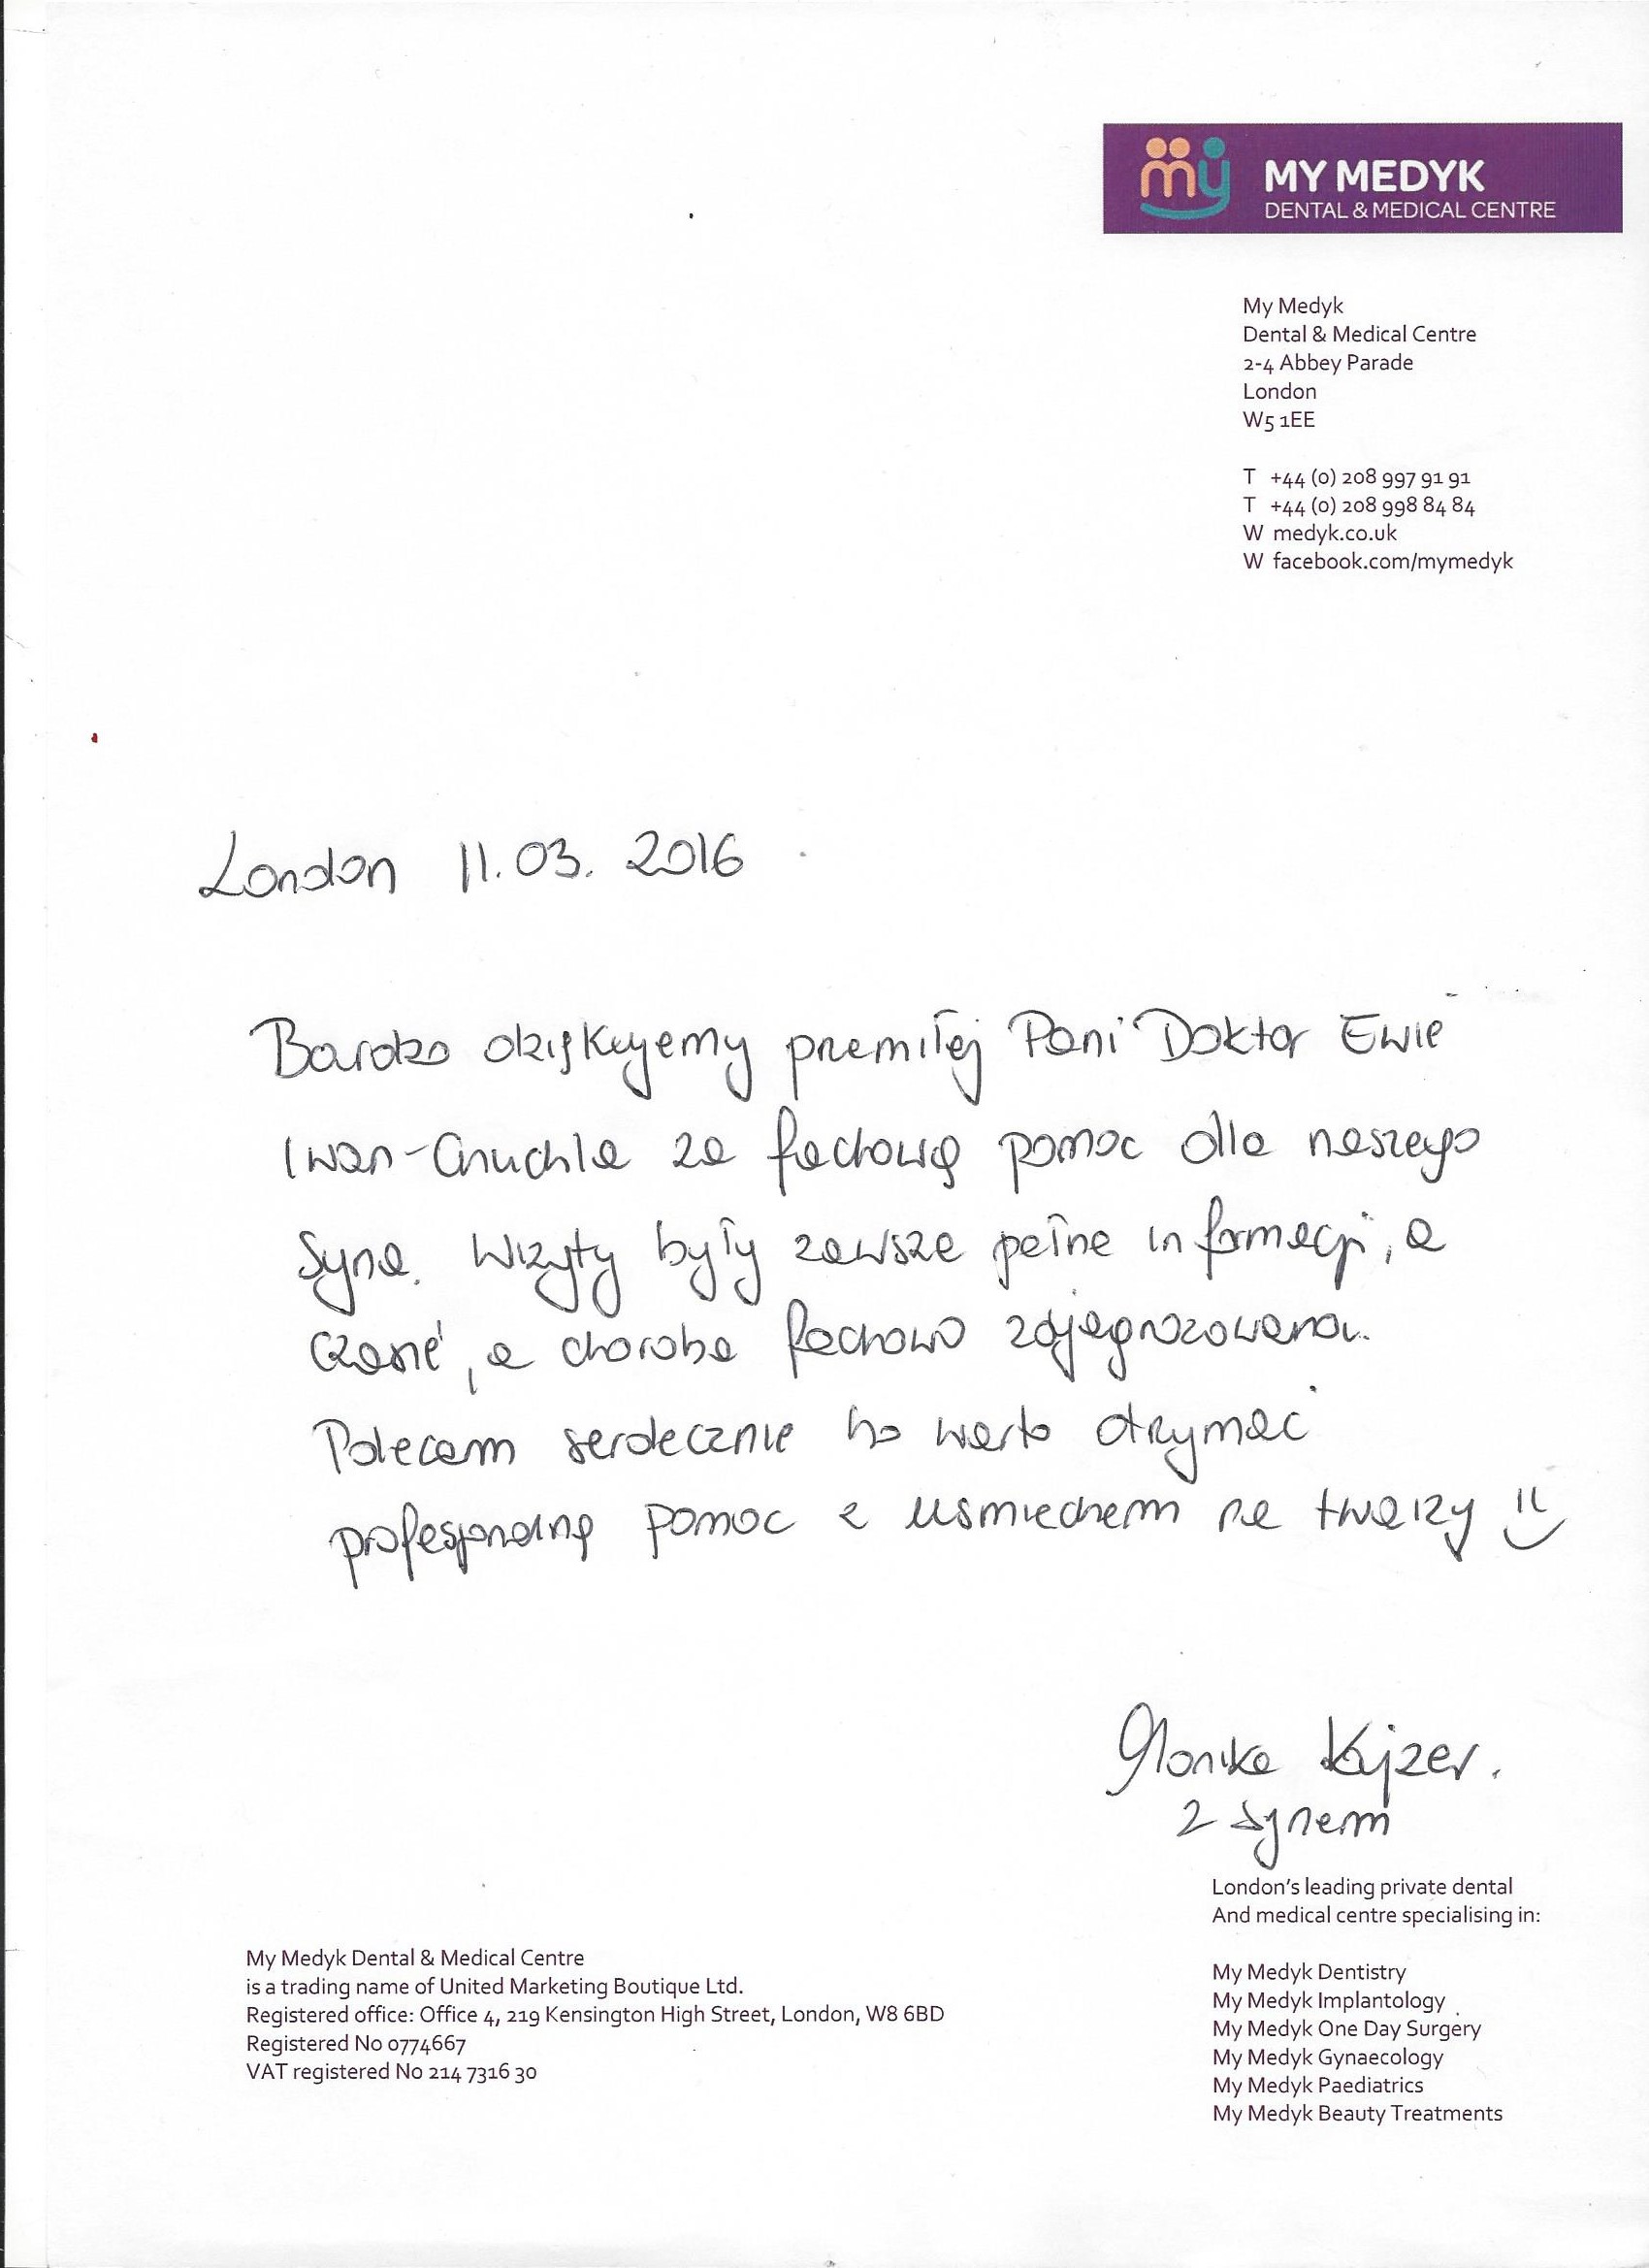 my MY MEDYK
DENTAL & MEDICAL CENTRE
My Medyk
Dental & Medical Centre
2-4 Abbey Parade
London
W5 1EE
T +44 (0) 208 997 91 91
T +44 (0) 208 998 84 84
W medyk.co.uk
W facebook.com/mymedyk
London 11.03. 2016
Bardzo dziękujemy przemiłej Pani Doktor Ewie
Iwan-Chuchla za fachową pomoc dla naszego
syna. Wizyty były zawsze pełne informacji, a
, a choroba fachowo zdjagnozowana.
Polecam serdecznie bo warto otrzymać
profesjonalną pomoc z usmiechem na twarzy
Monika Kyjzer.
z synem
London's leading private dental
And medical centre specialising in:
My Medyk Dentistry
My Medyk Implantology
My Medyk One Day Surgery
My Medyk Gynaecology
My Medyk Paediatrics
My Medyk Beauty Treatments
My Medyk Dental & Medical Centre
is a trading name of United Marketing Boutique Ltd.
Registered office: Office 4, 219 Kensington High Street, London, W8 6BD
Registered No 0774667
VAT registered No 214 7316 30